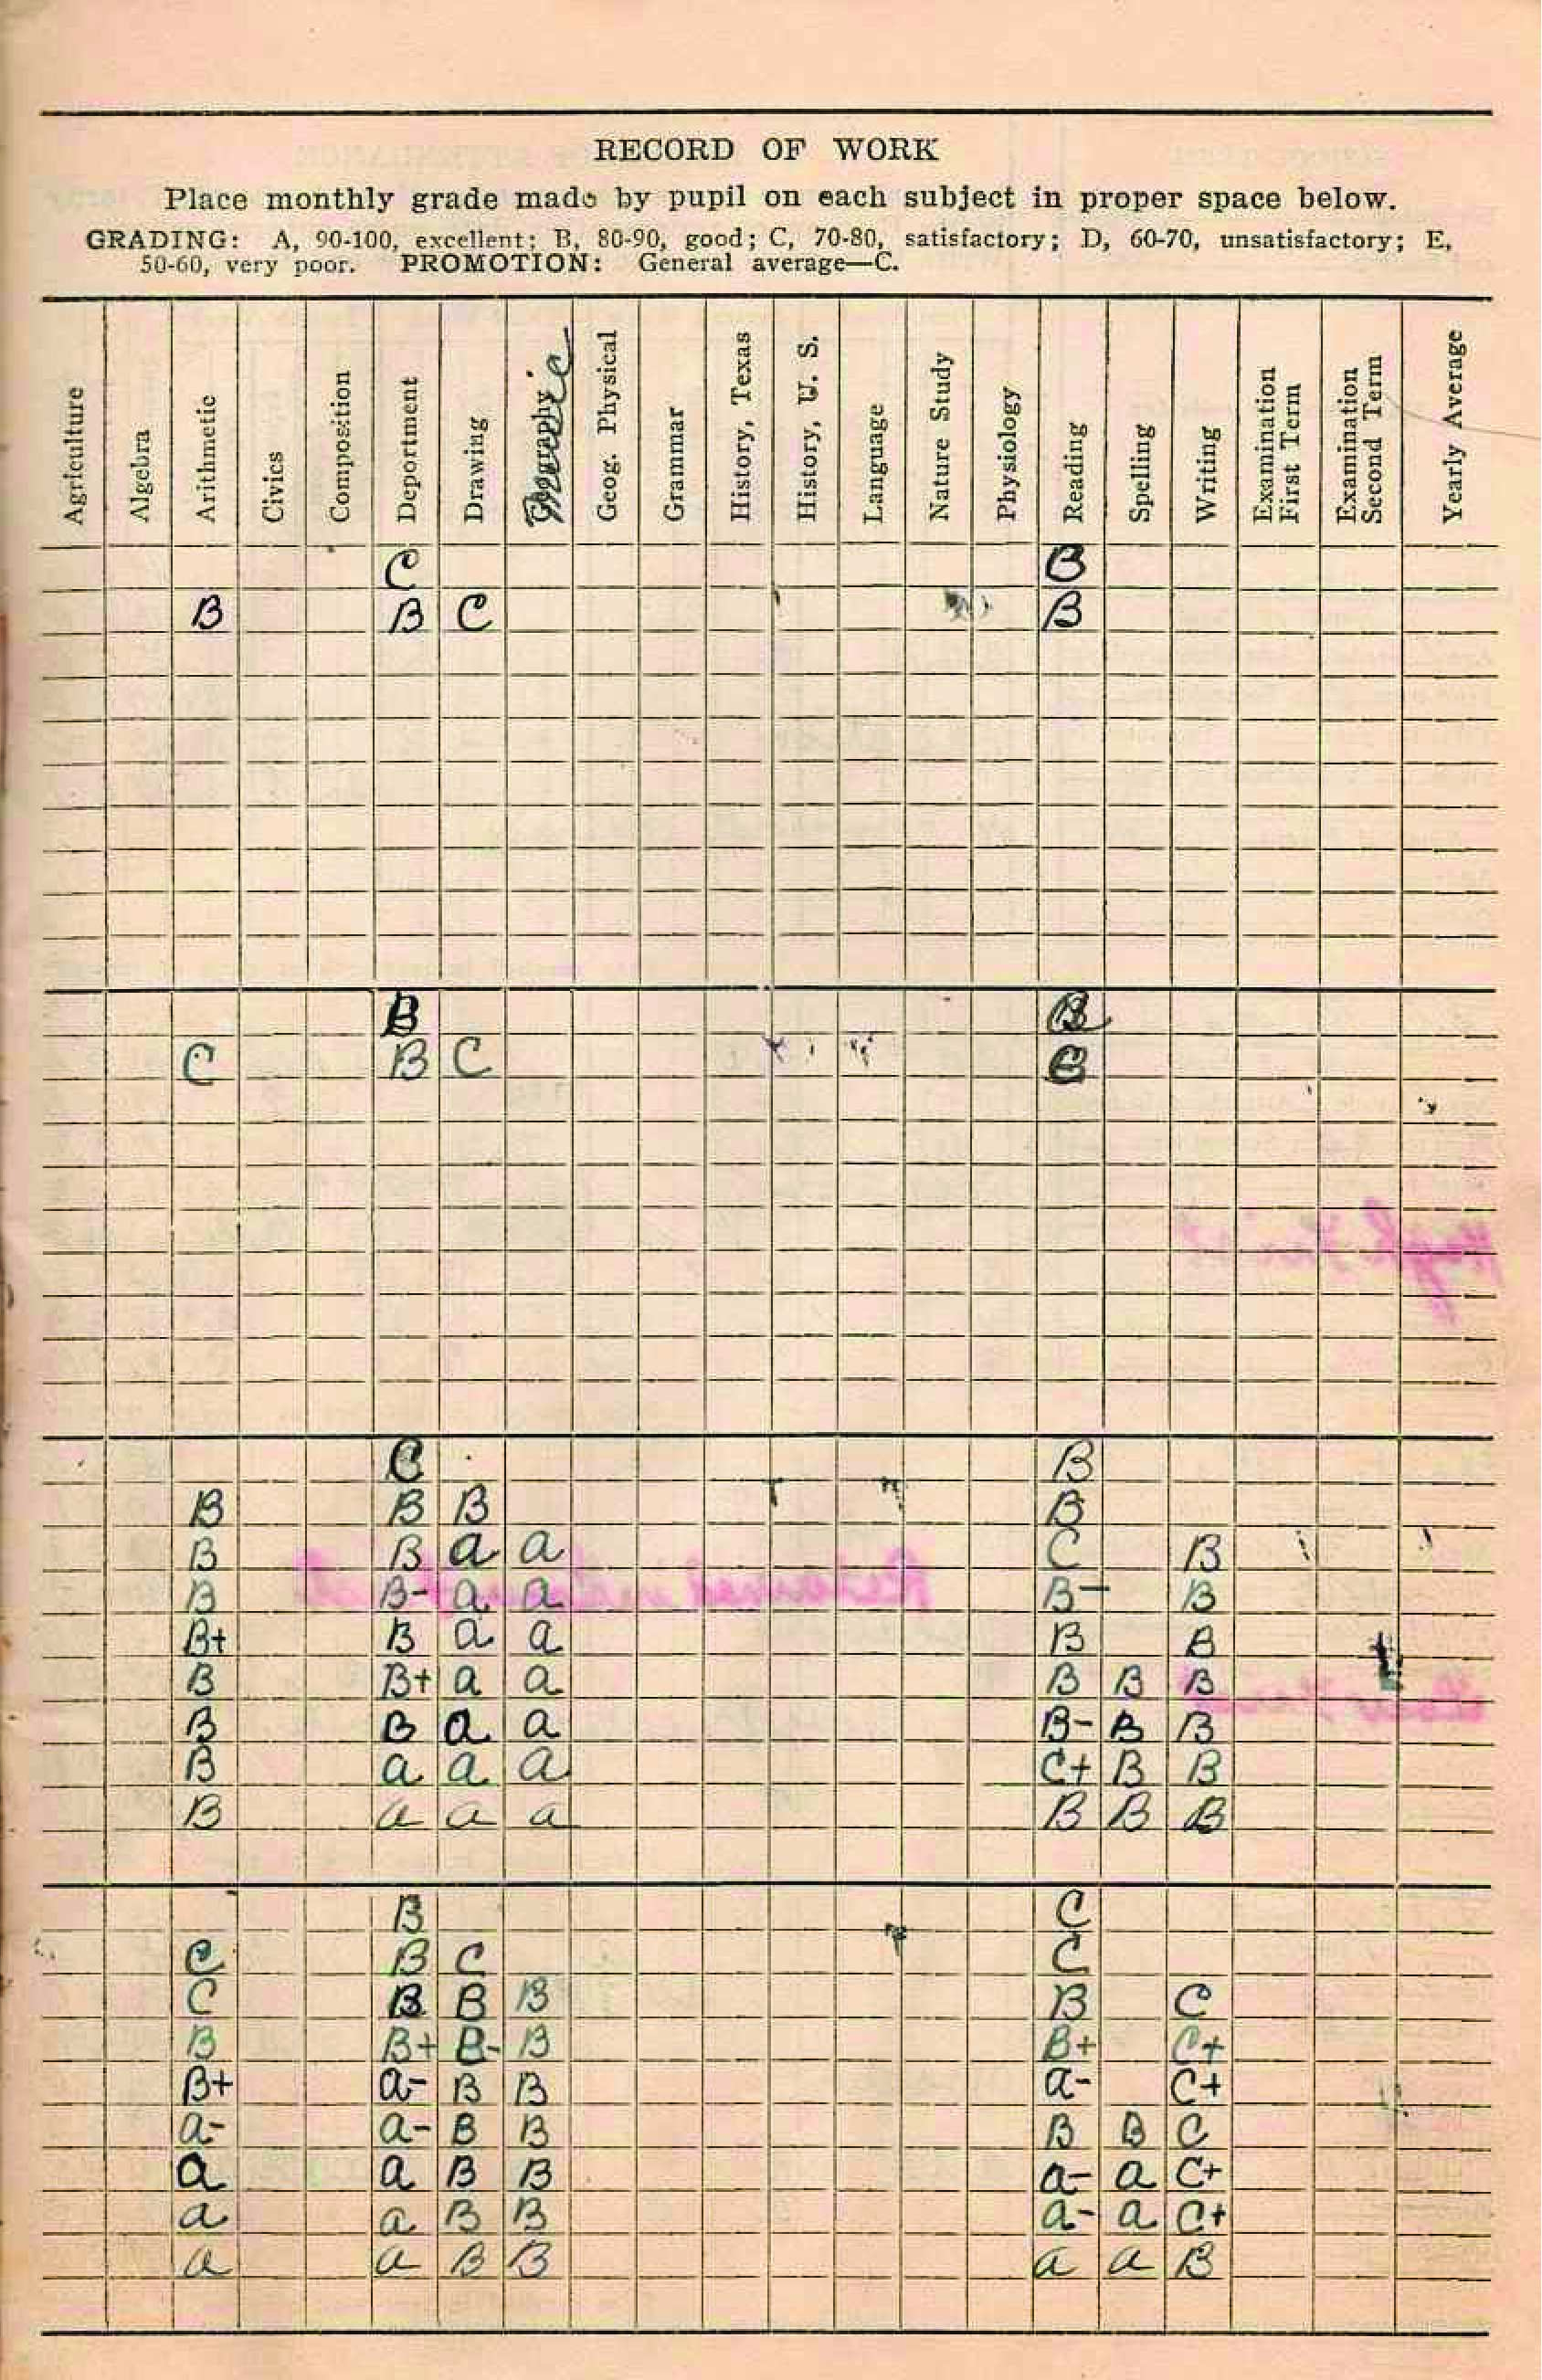 RECORD OF WORK
Place monthly grade made by pupil on each subject in proper space below.
GRADING: A, 90-100, excellent; B, 80-90, good; C, 70-80, satisfactory; D, 60-70, unsatisfactory; E,
50-60, very poor. PROMOTION: General average—C.
Agriculture Algebra Arithmetic Civics Composition Deportment Drawing Geography Music Geog. Physical Grammar History, Texas History, U. S. Language Nature Study Physiology Reading Spelling Writing Examination First Term Examination Second Term Yearly Average
C B
B B C B
B B
C B C C
C B
B B B B
B B a a C B
B B- a a B- B
B+ B a a B B
B B+ a a B B B
B B a a B- B B
B a a a C+ B B
B a a a B B B
B C
C B C C
C B B B B C
B B+ B- B B+ C+
B+ a- B B a- C+
a- a- B B B B C
a a B B a- a C+
a a B B a- a C+
a a B B a a B